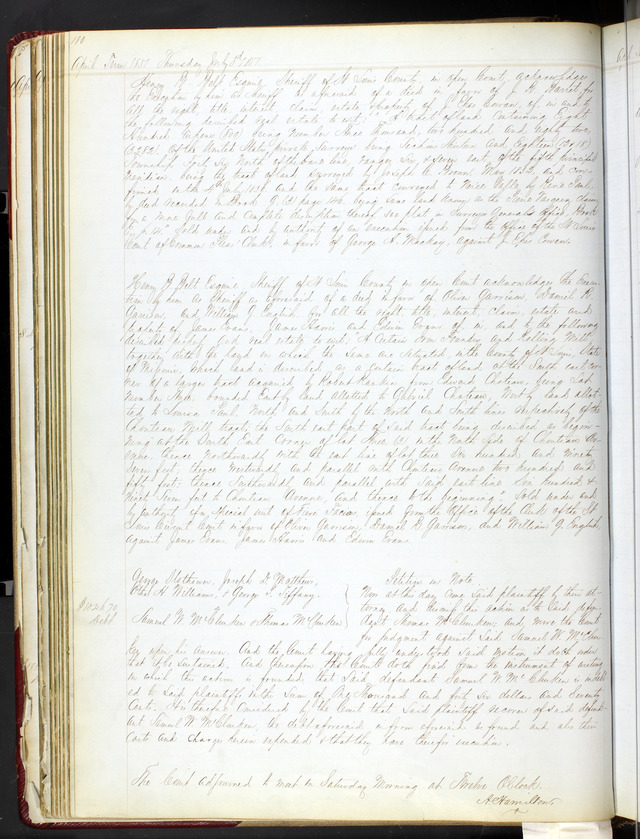 180
April Term 1857 Thursday July
Henry B. Belt Esquire Sheriff of St Louis County, in open Court, acknowledges
the Execution by him as Sheriff as aforesaid of a deed in favor of
all the right title interest claim, estate & property of J. of in and to
the following described real estate to wit: A tract of land Containing Eight
Hundred Arpens (800) being number three thousand, two hundred and eighty two
of the United States private Surveys being Section Nineteen and Eighteen
Township Forty Six North of the base line, ranges Six & Seven east of the fifth principal
Meridian being the tract of land Surveyed by Joseph C. Brown May 1832 and con-
firmed 4th July 1836 and the same tract conveyed to
by deed recorded in Book page 146 being same land
for a more full and Complete description thereof see plat in Surveyor Generals Office Book
Sold under and by authority of an execution issued from the Office of the St Louis
Court of Common Pleas Clerk in favor of George A. Mackay against
Henry B Belt Esquire Sheriff of St Louis County in open Court acknowledges the Execu-
tion by him as Sheriff as aforesaid of a deed in favor of Oliver Garrison, Daniel R.
Garrison and William G. English for all the right title, interest claim estate and
property of James Evans, James Harris and Edwin Evans of in and to the following
described property and real estate to wit: A Certain Iron Foundry and Rolling Mill
together with the land on which the same are situated in the County of St Louis State
of Missouri, which land is described as a certain tract of land at the South east cor-
ner of a larger tract acquired by Robert Rankin from Edward Chouteau, being Lot
Number three bounded East by land allotted to Gabriel Chouteau West by land allot-
ted to Louisa Paul, North and South by the North and South lines respectively of the
Chouteau Mill tract, the South east part of said tract being described as begin-
ning at the South East Corner of lot three (3) with North side of Chouteau Av-
enue thence Northwardly with the east line of lot three Six hundred and Ninety
Seven feet; thence Westwardly and parallel with Chouteau Avenue two hundred and
fifty feet; thence Southwardly and parallel with said east line Six hundred &
Ninety Seven feet to Chouteau Avenue, and thence to the beginning" Sold under and
by authority of a Special writ of Fieri Facias issued from the Office of the Clerk of the St
Louis Circuit Court in favor of Oliver Garrison, Daniel R Garrison, and William G. English
against James Evans James Harris and Edwin Evans.
George Mathews, Joseph D. Matthews,
H. Williams, & George Tiffany
Samuel W McClurken & Thomas McClurken
Debt
Petition in Note
Now at this day come said plaintiffs by their at-
torney and dismiss the action as to said defen-
dant Thomas McClurken; and, move the Court
for judgment against said Samuel W. McClur-
ken upon his answer. And the Court having fully understood said motion it doth order
that it be sustained. And thereupon the Court doth find from the instrument of writing
on which the action is founded that said defendant Samuel W McClurken is indebt-
ed to said plaintiffs in the Sum of One thousand and forty six dollars and Seventy
Cents. It is therefore considered by the Court that said plaintiffs recover of said defend-
ant Samuel W McClurken, the debt aforesaid in form aforesaid so found and also their
Costs and Charges herein expended & that they have therefor execution.
The Court adjourned to meet on Saturday Morning at Twelve OClock.
A Hamilton